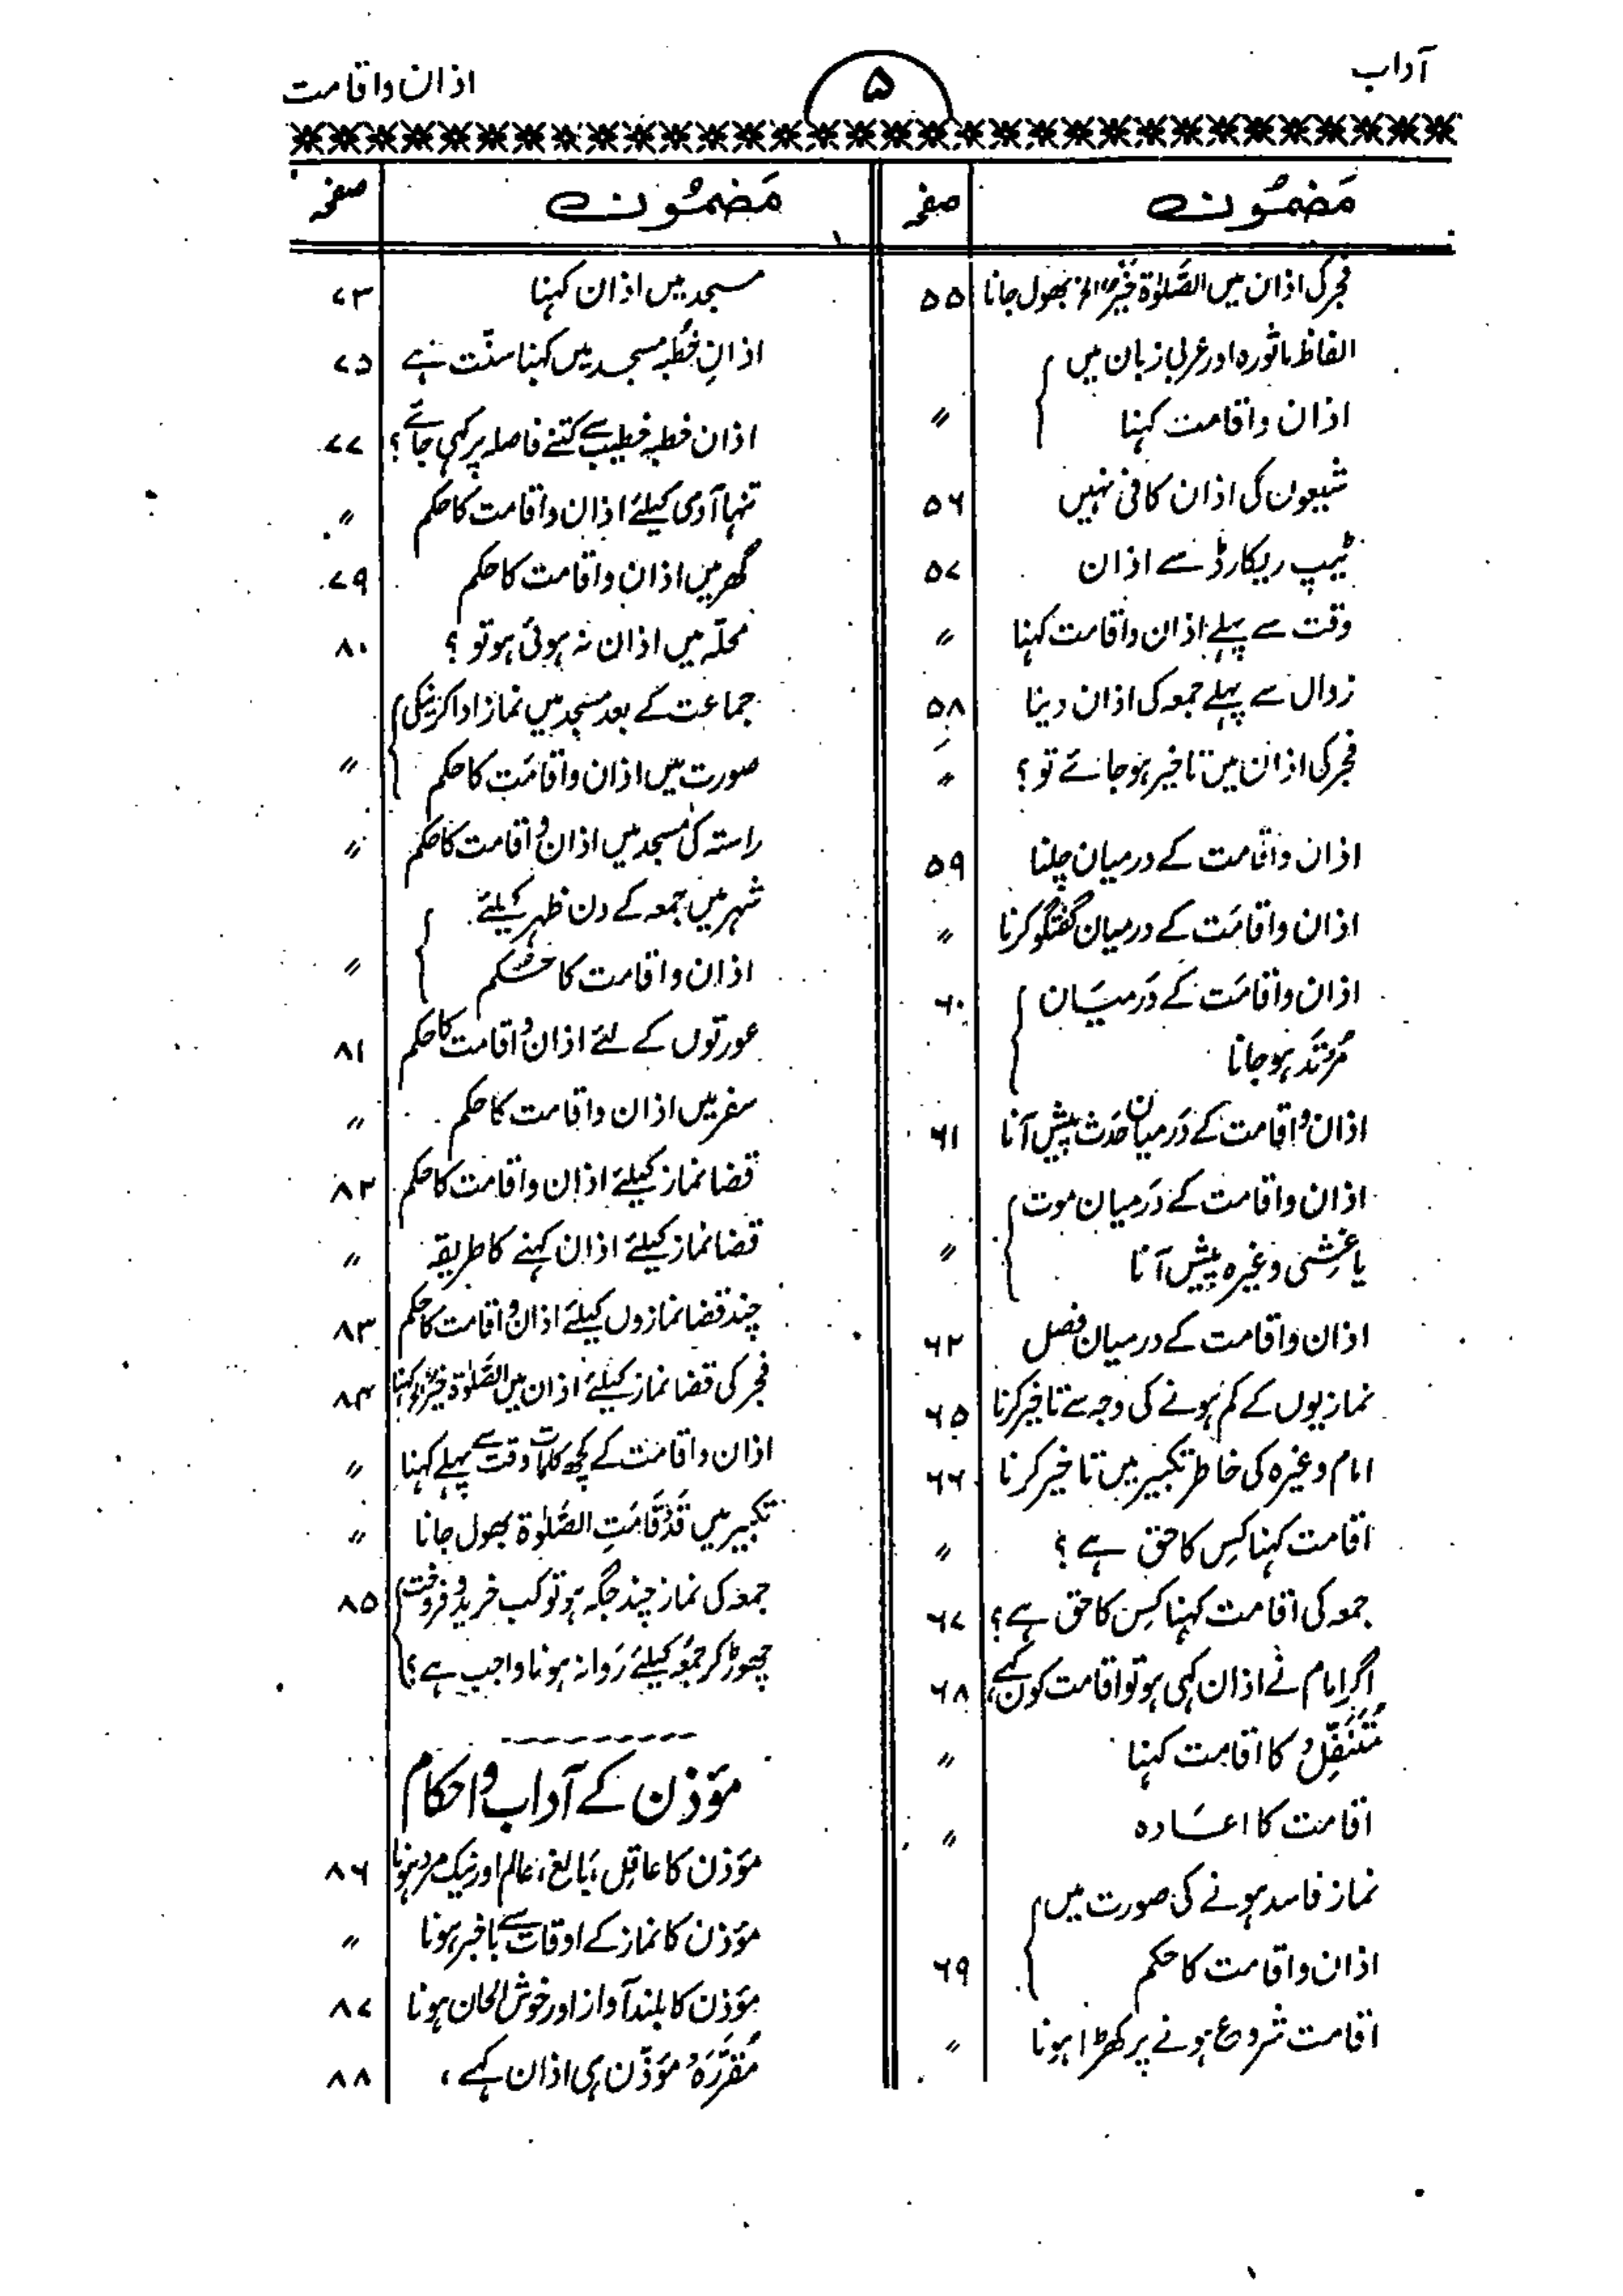 آداب
۵
اذان واقامت
مضمون صفحہ
فجر کی اذان میں الصَّلوٰۃ خَیْرٌ الخ بھول جانا ۵۵
الفاظ ماثورہ اور عربی زبان میں
اذان واقامت کہنا 〃
شیعوں کی اذان کافی نہیں ۵۶
ٹیپ ریکارڈ سے اذان ۵۷
وقت سے پہلے اذان واقامت کہنا 〃
زوال سے پہلے جمعہ کی اذان دینا ۵۸
فجر کی اذان میں تاخیر ہو جائے تو؟ 〃
اذان واقامت کے درمیان چلنا ۵۹
اذان واقامَت کے درمیان گفتگو کرنا 〃
اذان واقامَت کے دَرمیَان ۶۰
مُرتَد ہو جانا
اذان و اقامت کے دَرمیان حَدَث پیش آنا ۶۱
اذان واقامت کے دَرمیان موت
یا غشی وغیرہ پیش آنا 〃
اذان واقامت کے درمیان فصل ۶۲
نمازیوں کے کم ہونے کی وجہ سے تاخیر کرنا ۶۵
امام وغیرہ کی خاطر تکبیر میں تاخیر کرنا ۶۶
اقامت کہنا کِس کا حق ہے؟ 〃
جمعہ کی اقامت کہنا کِس کا حق ہے؟ ۶۷
اگر امام نے اذان کہی ہو تو اقامت کون کہے ۶۸
مُتَنَفِّل کا اقامت کہنا 〃
اقامت کا اعَادہ 〃
نماز فاسد ہونے کی صورت میں
اذان واقامت کا حکم ۶۹
اقامت شروع ہونے پر کھڑا ہونا 〃
مضمون صفحہ
مسجد میں اذان کہنا ۷۳
اذانِ خُطبہ مسجد میں کہنا سنّت ہے ۷۵
اذان خطبہ خطیب سے کتنے فاصلہ پر کہی جائے؟ ۷۷
تنہا آدمی کیلئے اذان واقامت کا حکم 〃
گھر میں اذان واقامت کا حکم ۷۹
محلّہ میں اذان نہ ہوئی ہو تو؟ ۸۰
جماعت کے بعد مسجد میں نماز ادا کرنیکی
صورت میں اذان واقامَت کا حکم 〃
راستہ کی مسجد میں اذان و اقامت کا حکم 〃
شہر میں جمعہ کے دن ظہر کیلئے
اذان واقامت کا حکم 〃
عورتوں کے لئے اذان و اقامت کا حکم ۸۱
سفر میں اذان واقامت کا حکم 〃
قضا نماز کیلئے اذان واقامت کا حکم ۸۲
قضا نماز کیلئے اذان کہنے کا طریقہ 〃
چند قضا نمازوں کیلئے اذان و اقامت کا حکم ۸۳
فجر کی قضا نماز کیلئے اذان میں الصَّلوٰۃ خَیْرٌ الخ کہنا ۸۴
اذان واقامت کے کچھ کلمات وقت سے پہلے کہنا 〃
تکبیر میں قَدْ قَامَتِ الصَّلوٰۃ بھول جانا 〃
جمعہ کی نماز چند جگہ ہو تو کب خرید و فروخت ۸۵
چھوڑ کر جمُعہ کیلئے رَوانہ ہونا واجب ہے؟
مؤذن کے آداب و احکام
مؤذن کا عاقِل، بَالغ، عالم اور نیک مرد ہونا ۸۶
مؤذن کا نماز کے اوقات سے باخبر ہونا 〃
مؤذن کا بلند آواز اور خوش الحان ہونا ۸۷
مُقرَّرَہ مؤذّن ہی اذان کہے، ۸۸